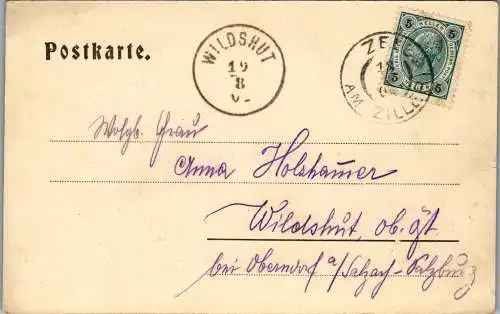 Postkarte.
WILDSHUT
19
8
ZELL
18
AM ZILLER
5 HELLER 5
Wolgb. Frau
Anna Holzhamer
Wildshut, ob. öst.
bei Oberndorf a/Salzach-Salzburg